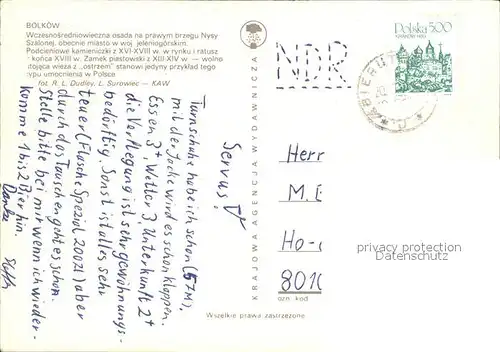 BOLKÓW
Wczesnośredniowieczna osada na prawym brzegu Nysy
Szalonej, obecnie miasto w woj. jeleniogórskim.
Podcieniowe kamieniczki z XVI-XVIII w. w rynku i ratusz
końca XVIII w. Zamek piastowski z XIII-XIV w. — wolno
stojąca wieża z „ostrzem" stanowi jedyny przykład tego
typu umocnienia w Polsce
fot. R. L. Dudley, L. Surowiec — KAW
KRAJOWA AGENCJA WYDAWNICZA
NDR
Polska 500
Servus!
Turnschuhe habe ich schon (57M),
mit der Jacke wird es schon klappen.
Essen 3+, Wetter 3, Unterkunft 2+
die Verpflegung ist sehr gewöhnungs-
bedürftig. Sonst ist alles sehr
teuer (Flasche Spezial 200Zl) aber
durch das Tauschen geht es schon.
Stelle bitte bei mir wenn ich wieder-
komme 1 bis 2 Bier hin.
Danke
Herr
M. E
Ho-
801
ozn. kod
Wszelkie prawa zastrzeżone
privacy protection
Datenschutz